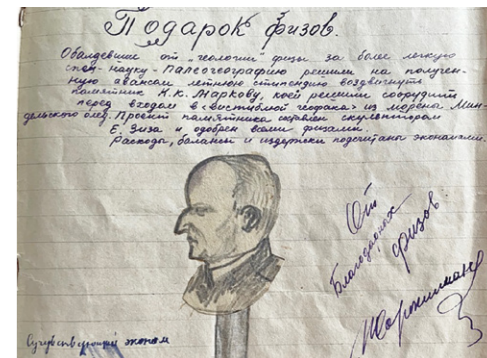 Подарок физов.
Обалдевшие от "геологии" физы за более легкую
спец-науку - Палеогеографию решили на получен-
ную авансом летнюю стипендию воздвигнуть
памятник К.К. Маркову, коей решили соорудить
перед входом в <вестибюль геофака> из морены Мин-
дельского олед. Проект памятника составлен скульптором
Е. Зиза и одобрен всеми физами.
Расходы, балансы и издержки подсчитаны экономгеогр.
От
Благодарных
физов.
Сочувствующий эконом